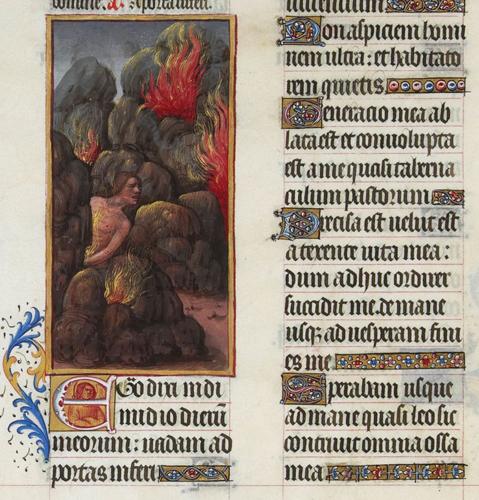 Ego dixi in di
midio dierū
meorum: uadam ad
portas inferi
uiuencium
Non aspiciam homi
nem ultra: et habitato
rem quietis
Generacio mea ab
lata est et conuolupta
est a me quasi taberna
culum pastorum
Precisa est uelut est
a texente uita mea:
dum adhuc ordirer
succidit me. de mane
usq; ad uesperam fini
es me
Sperabam usque
ad mane quasi leo sic
contriuit omnia ossa
mea